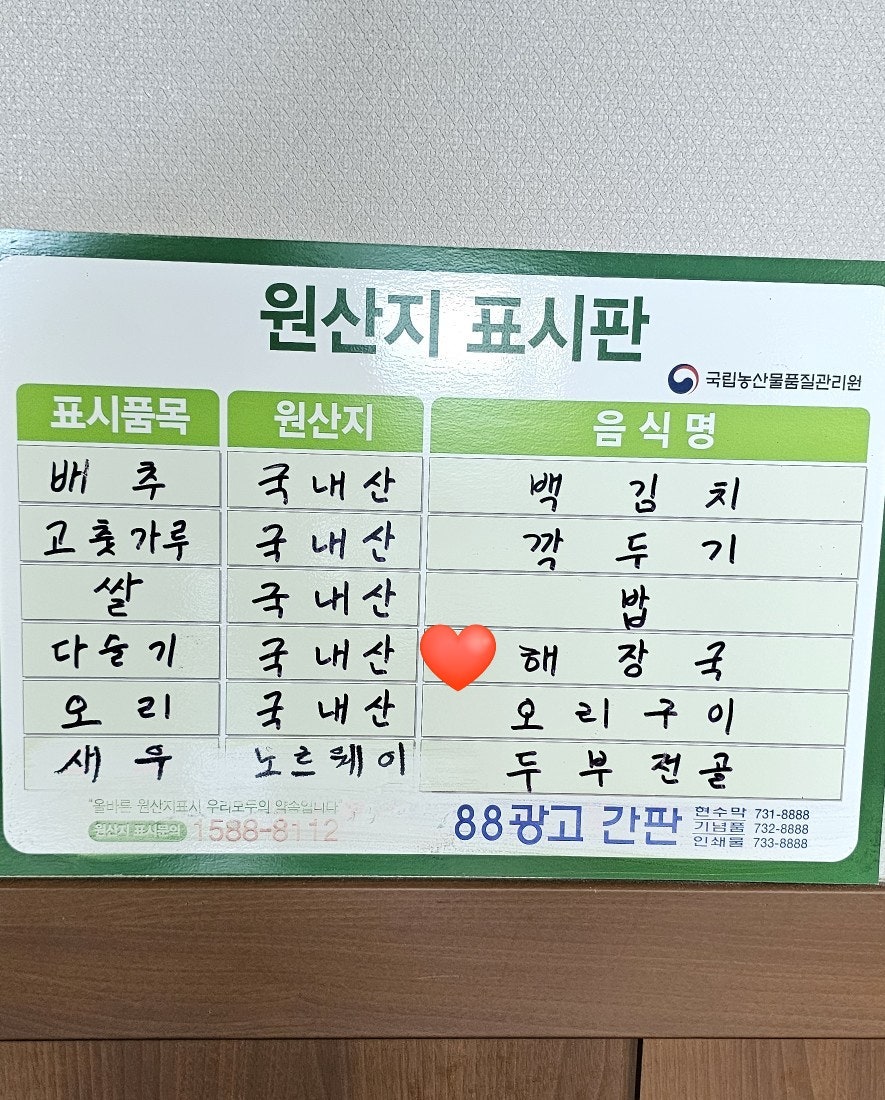 원산지 표시판
국립농산물품질관리원
표시품목 원산지 음식명
배추 국내산 백김치
고춧가루 국내산 깍두기
쌀 국내산 밥
다슬기 국내산 해장국
오리 국내산 오리구이
새우 노르웨이 두부전골
"올바른 원산지표시 우리모두의 약속입니다"
원산지 표시문의 1588-8112
88광고 간판
현수막 731-8888
기념품 732-8888
인쇄물 733-8888